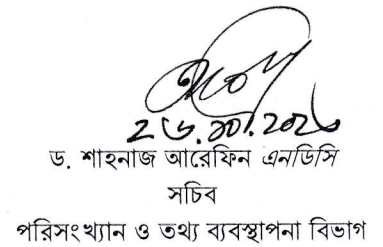 ড. শাহনাজ আরেফিন এনডিসি
সচিব
পরিসংখ্যান ও তথ্য ব্যবস্থাপনা বিভাগ